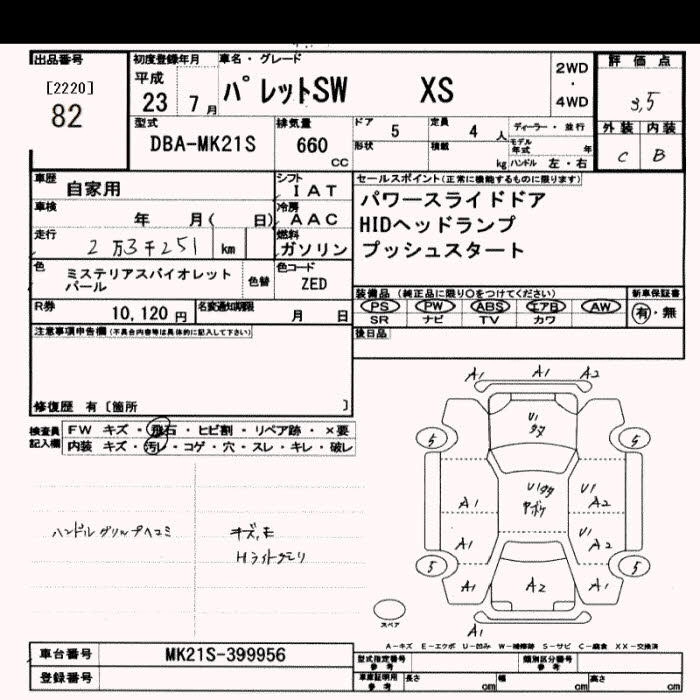 出品番号 初度登録年月 車名・グレード 評価点
[2220] 平成 パレットSW XS 2WD
82 23 7月 ・ 4WD 3,5
型式 排気量 ドア 5 定員 4人 ディーラー・並行 外装 内装
DBA-MK21S 660 CC 形状 積載 kg モデル年式 年 C B
ハンドル 左・右
車歴 自家用 シフト IAT セールスポイント(正常に機能するものに限ります)
車検 年 月( 日) 冷房 AAC パワースライドドア
走行 2万3千251 km 燃料 ガソリン HIDヘッドランプ
プッシュスタート
色 ミステリアスバイオレット 色替 色コード
パール ZED
装備品 (純正品に限り○をつけてください) 新車保証書
R券 10,120円 名変通知期限 月 日 PS PW ABS エアB AW 有・無
SR ナビ TV カワ
注意事項申告欄(不具合内容等は具体的に記入して下さい) 後日品
修復歴 有〔箇所 〕
検査員 FW キズ・飛石・ヒビ割・リペア跡・×要
記入欄 内装 キズ・汚レ・コゲ・穴・スレ・キレ・破レ
A1 A1 A2
U1
タメ
5 5
A1 U1タタ U1 A2
ヤボケ
A1 U1 A2
5 5
A1 A2 A1
スペア
A1
ハンドルグリップヘコミ キズ,モ
Hライトクモリ
A-キズ E-エクボ U-凹み W-補修跡 S-サビ C-腐食 XX-交換済
車台番号 MK21S-399956 型式指定番号 参考 類別区分番号 参考
登録番号 車庫証明用 参考 長さ cm 幅 cm 高さ cm